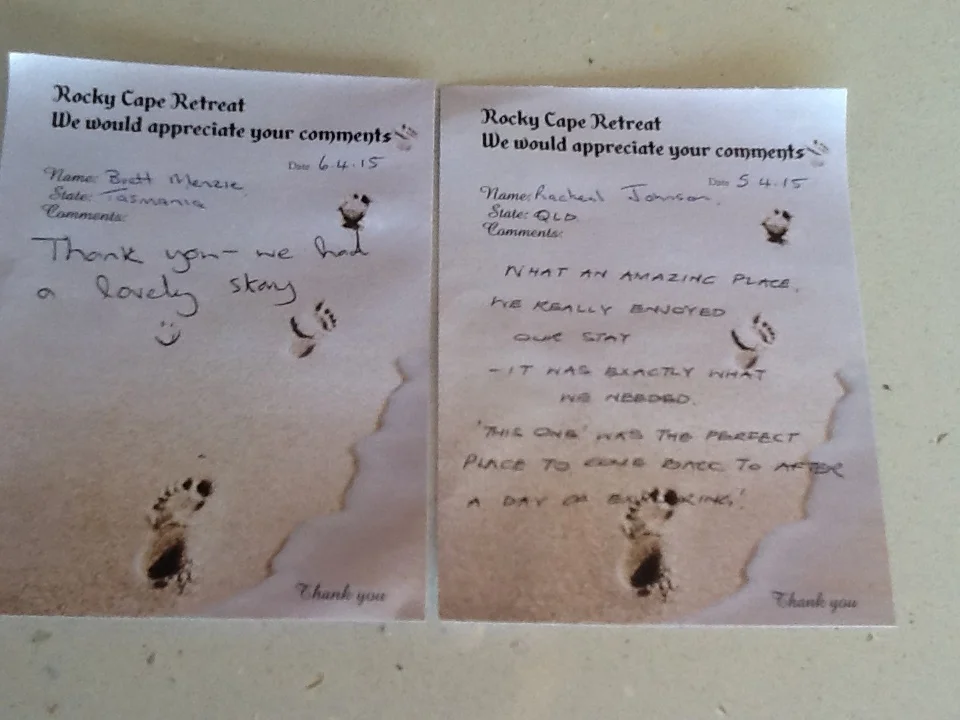 Rocky Cape Retreat
We would appreciate your comments
Date 6.4.15
Name: Brett Menzie
State: Tasmania
Comments:
Thank you - we had
a lovely stay
Thank you
Rocky Cape Retreat
We would appreciate your comments
Date 5 4.15
Name: Racheal Johnson.
State: QLD
Comments:
WHAT AN AMAZING PLACE.
WE REALLY ENJOYED
OUR STAY
- IT WAS EXACTLY WHAT
WE NEEDED.
'THIS ONE' WAS THE PERFECT
PLACE TO COME BACK TO AFTER
A DAY OF EXPLORING!
Thank you